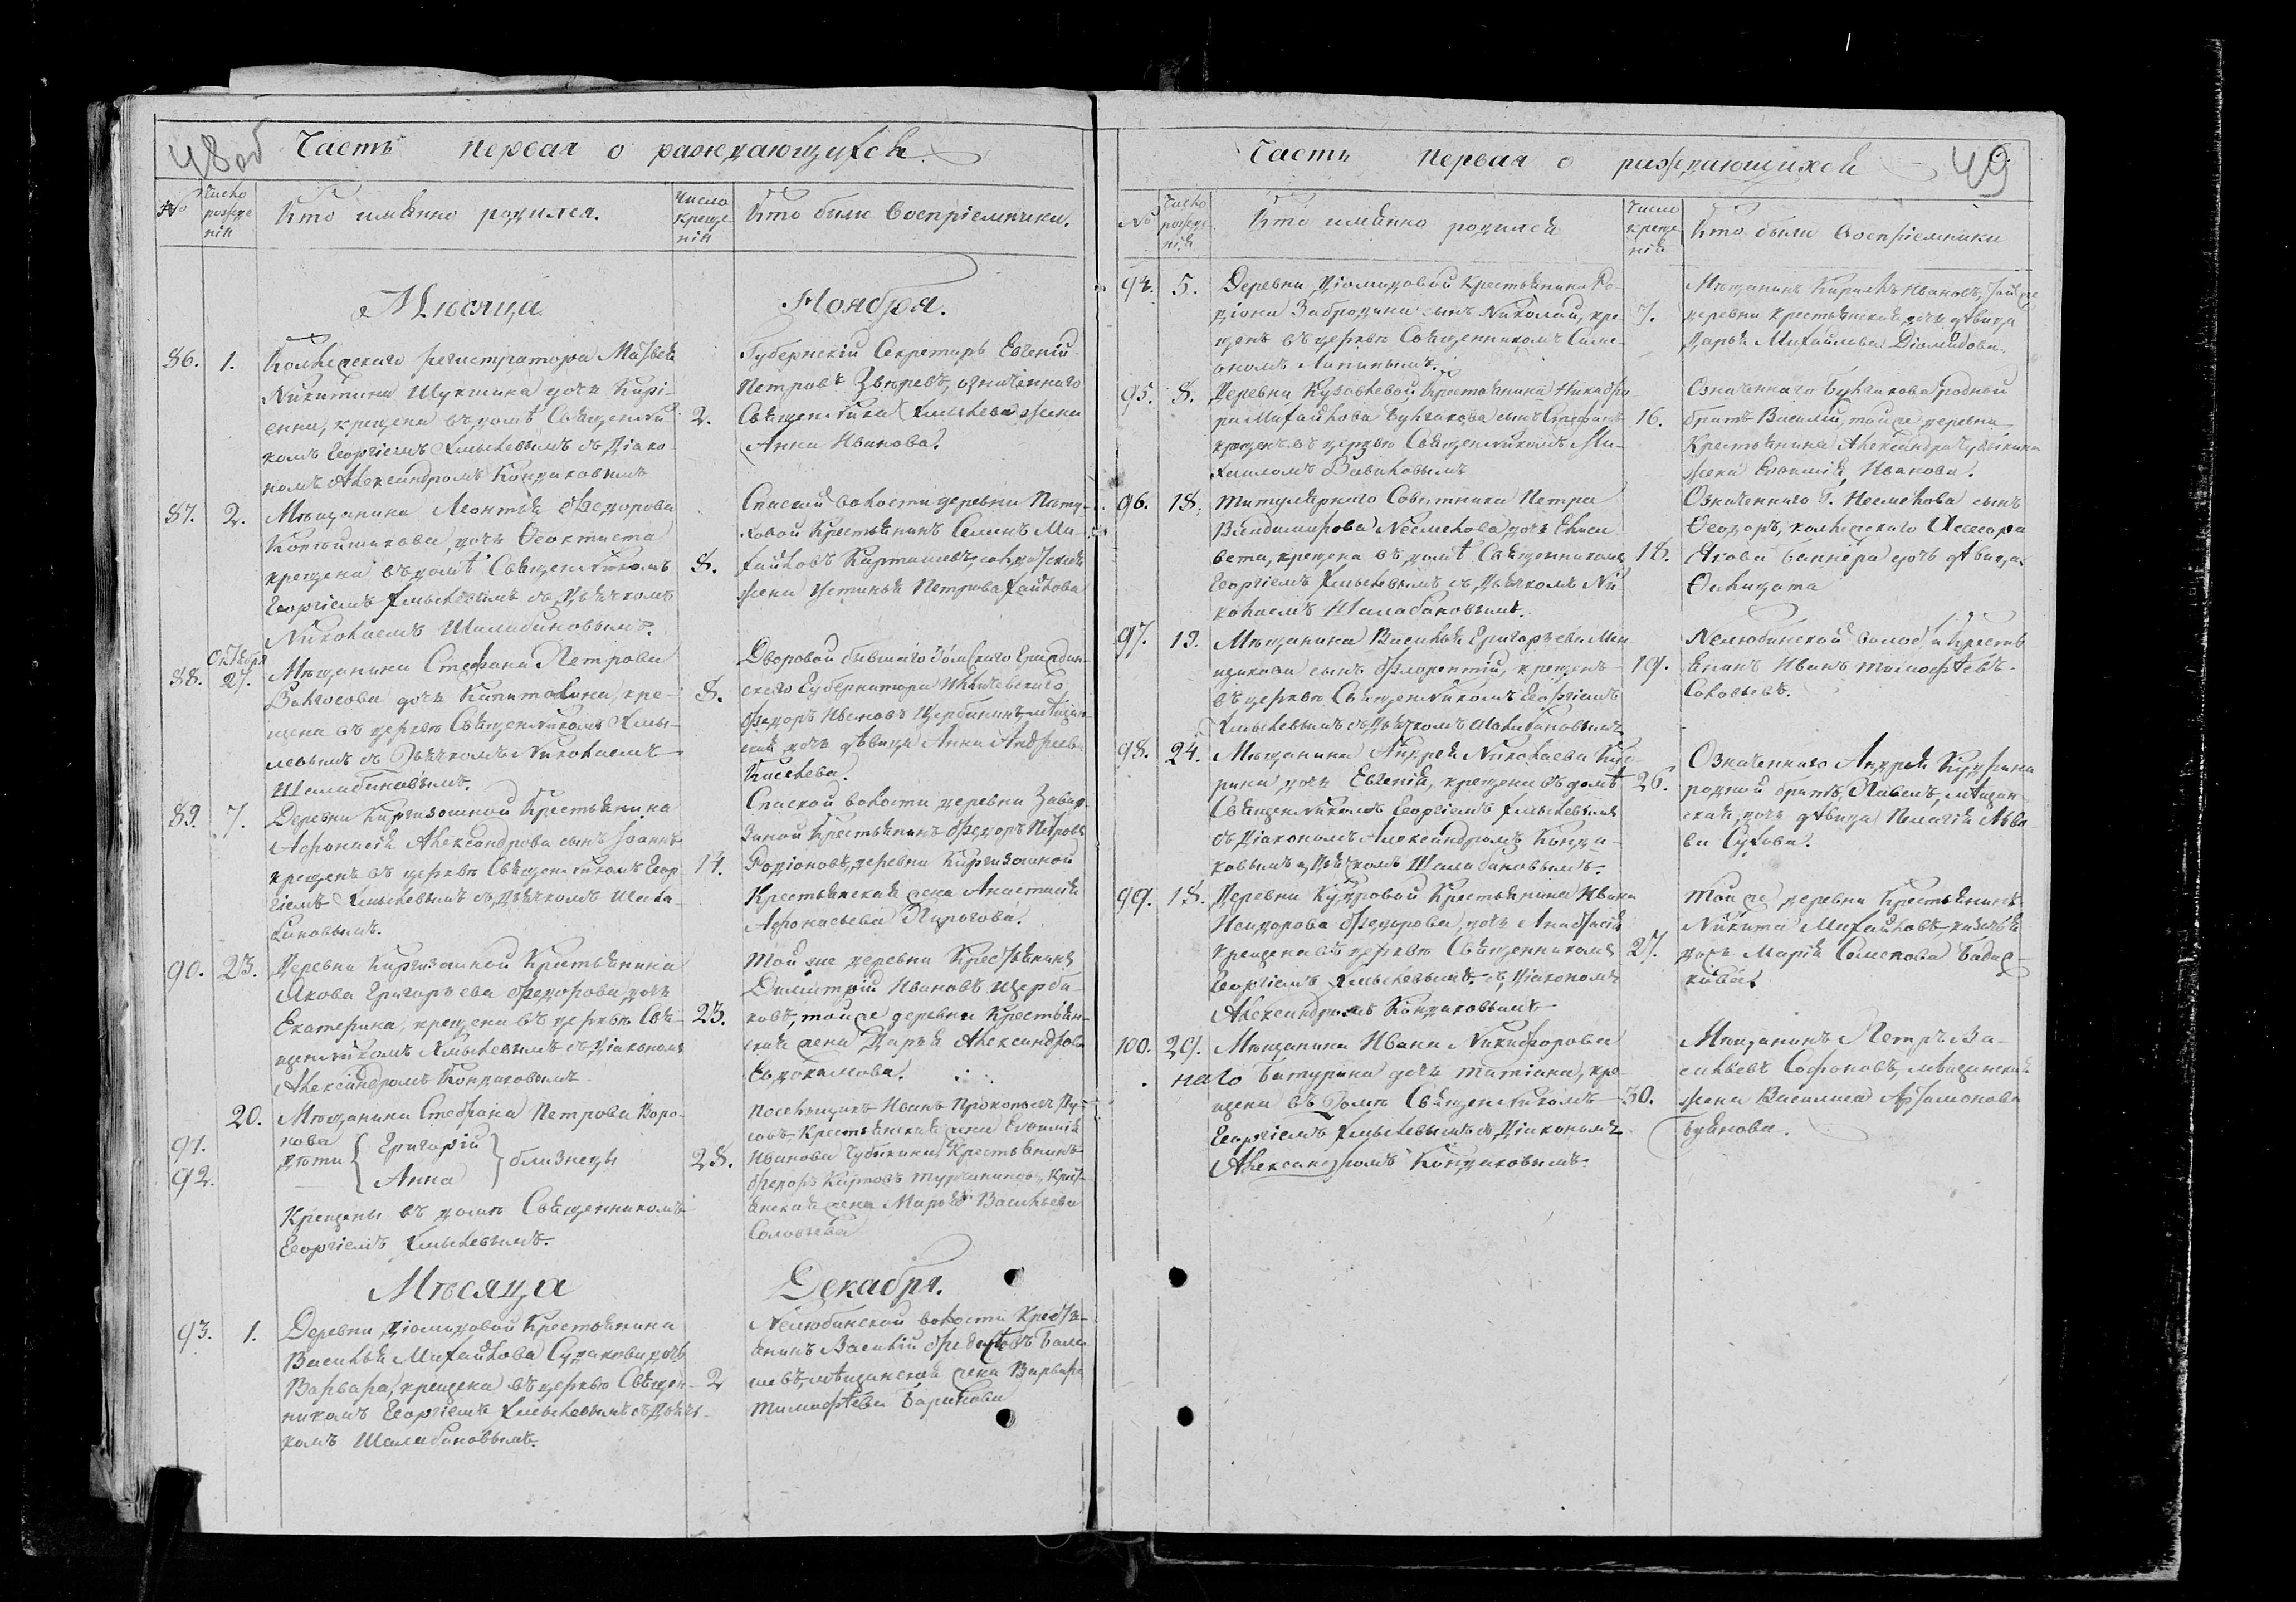 48об
Часть первая о раждающихся.
№
Число рожде нія
Кто имянно родился.
Число креще нія
Кто были воспріемники.
Мѣсяца Ноября.
86. 1.
Колежскаго регистратора Матвея
Никитина Шуктина дочь Кирі-
енна, крещена въ домѣ Священни
комъ Георгіемъ Хмылевымъ съ Діако-
номъ Александромъ Кондаковымъ
2.
Губернскій Секретарь Евгеній
Петровъ Звѣревъ, означеннаго
Священника Хмылева жена
Анна Иванова.
87. 2.
Мѣщанина Леонтья Ѳедорова
дочь Ѳеоктиста
крещена въ домѣ Священникомъ
Георгіемъ Хмылевымъ съ Дьячкомъ
Николаемъ Шалабановымъ.
8.
Спаской волости деревни Пѣту-
ховой Крестьянинъ Семенъ Ми-
хайловъ Карташевъ,
жена Устинья Петрова
88. Октября 27.
Мѣщанина Стефана Петрова
дочь Капиталина, кре-
щена въ церкви Священникомъ Хмы-
левымъ съ Дьячкомъ Николаемъ
Шалабановымъ.
8.
Дворовой бывшаго Томскаго Граждан-
скаго Губернатора
Ѳедоръ Ивановъ Щербининъ, мѣщан-
ская дочь дѣвица Анна Андреева
Киселева.
89. 7.
Деревни Киргизошной Крестьянина
Афонасія Александрова сынъ Іоаннъ
крещенъ въ церкви Священникомъ Геор-
гіемъ Хмылевымъ съ Дьячкомъ Шала-
бановымъ.
14.
Спаской волости деревни Завар-
зиной Крестьянинъ Ѳедоръ Петровъ
Родіоновъ, деревни Киргизошной
Крестьянская жена Анастасія
Афонасьева Пирогова.
90. 23.
Деревни Киргизошной Крестьянина
Якова Григорьева Ѳедорова дочь
Екатерина, крещена въ церкви Свя-
щенникомъ Хмылевымъ съ Діакономъ
Александромъ Кондаковымъ
23.
Той же деревни Крестьянинъ
Димитрій Ивановъ Щерба-
ковъ, той же деревни Крестьян-
ская жена Дарья Александрова
Евдокимова.
20.
Мѣщанина Стефана Петрова Воро-
нова
91.
92.
Дѣти { Григорій Анна } близнецы
Крещены въ домѣ Священникомъ
Георгіемъ Хмылевымъ.
28.
Поселенщикъ Иванъ Прокопьевъ
Крестьянская жена
Иванова Губинина, Крестьянинъ
Ѳедоръ Карповъ Крест-
ьянская жена Марья Васильева
Соловьева
Мѣсяца Декабря.
93. 1.
Деревни Діомидовой Крестьянина
Василья Михайлова Судакова дочь
Варвара, крещена въ церкви Священ-
никомъ Георгіемъ Хмылевымъ съ Дьяч-
комъ Шалабановымъ.
2
Нелюбинской волости Кресть-
янинъ Василій
мѣщанская жена Варвара
Тимофѣева Баранова
Часть первая о раждающихся 49
№
Число рожде нія
Кто имянно родился
Число креще нія
Кто были воспріемники
94. 5.
Деревни Діомидовой Крестьянина Ро-
діона Забродина сынъ Николай, кре-
щенъ въ церкви Священникомъ Симе-
ономъ Лапинымъ.
7.
Мѣщанинъ Кирилъ Ивановъ, той же
деревни крестьянская дочь дѣвица
Дарья Михайлова Діомидова.
95. 8.
Деревни Кузовлевой Крестьянина Никифо
ра Михайлова Булгакова сынъ Стефанъ
крещенъ въ церкви Священникомъ Ми-
хаиломъ Вавиловымъ
16.
Означеннаго Булгакова родной
братъ Василій, той же деревни
Крестьянина Александра
жена Иванова.
96. 18.
Титулярнаго Совѣтника Петра
Владимирова Неемелова дочь Елиса-
вета, крещена въ домѣ Священникомъ
Георгіемъ Хмылевымъ съ Дьячкомъ Ни-
колаемъ Шалабановымъ.
18.
Означеннаго Г. Неемелова сынъ
Ѳеодоръ, колежскаго Ассесора
Якова дочь дѣвица
Фелицата
97. 19.
Мѣщанина Василья Григорьева
сынъ Флорентій, крещенъ
въ церкви Священникомъ Георгіемъ
Хмылевымъ съ Дьячкомъ Шалабановымъ
19.
Нелюбинской волости Кресть-
янинъ Иванъ Тимофѣевъ
Соловьевъ.
98. 24.
Мѣщанина Андрея Николаева Куд-
рина дочь Евгенія, крещена въ домѣ
Священникомъ Георгіемъ Хмылевымъ
съ Діакономъ Александромъ Конда-
ковымъ и Дьячкомъ Шалабановымъ.
26.
Означеннаго Андрея Кудрина
родной братъ Павелъ, мѣщан-
ская дочь дѣвица Пелагія Льво-
ва Сухова.
99. 18.
Деревни Кудровой Крестьянина Ивана
Исидорова Ѳедорова дочь Анастасія
крещена въ церкви Священникомъ
Георгіемъ Хмылевымъ съ Діакономъ
Александромъ Кондаковымъ
27.
Той же деревни Крестьянинъ
Никита Михайловъ, казачья
дочь Марія Семенова
100. 29.
Мѣщанина Ивана Никифорова
Батурина дочь Татіана, кре-
щена въ домѣ Священникомъ
Георгіемъ Хмылевымъ съ Діакономъ
Александромъ Кондаковымъ.
30.
Мѣщанинъ Петръ Ва-
сильевъ Сафоновъ, мѣщанская
жена Василиса Артамонова